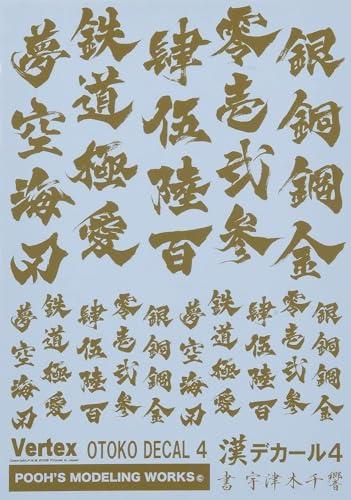 銀銅鋼金
零壱弐参
肆伍陸百
鉄道極愛
夢空海刃
銀銅鋼金
零壱弐参
肆伍陸百
鉄道極愛
夢空海刃
銀銅鋼金
零壱弐参
肆伍陸百
鉄道極愛
夢空海刃
Vertex OTOKO DECAL 4 漢デカール4
POOH'S MODELING WORKS© 書 宇津木千響